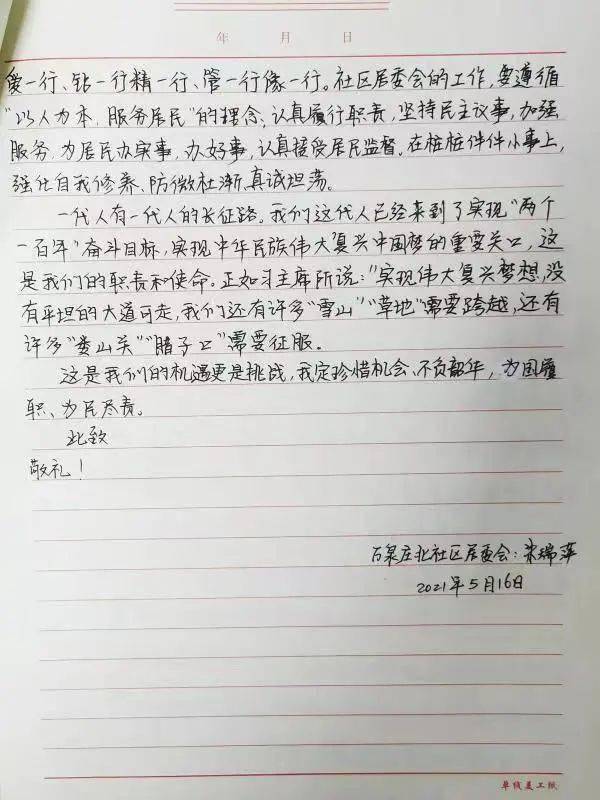 年 月 日
爱一行、钻一行精一行、管一行像一行。社区居委会的工作,要遵循
“以人为本、服务居民”的理念、认真履行职责,坚持民主议事,加强
服务,为居民办实事,办好事,认真接受居民监督。在桩桩件件小事上,
强化自我修养、防微杜渐、真诚坦荡。
一代人有一代人的长征路。我们这代人已经来到了实现“两个
一百年”奋斗目标,实现中华民族伟大复兴中国梦的重要关口,这
是我们的职责和使命。正如习主席所说:“实现伟大复兴梦想,没
有平坦的大道可走,我们还有许多“雪山”“草地”需要跨越,还有
许多“娄山关”“腊子口”需要征服。
这是我们的机遇更是挑战,我定珍惜机会、不负韶华,为国履
职、为民尽责。
此致
敬礼!
石泉庄北社区居委会:米瑞萍
2021年5月16日
单线美工纸